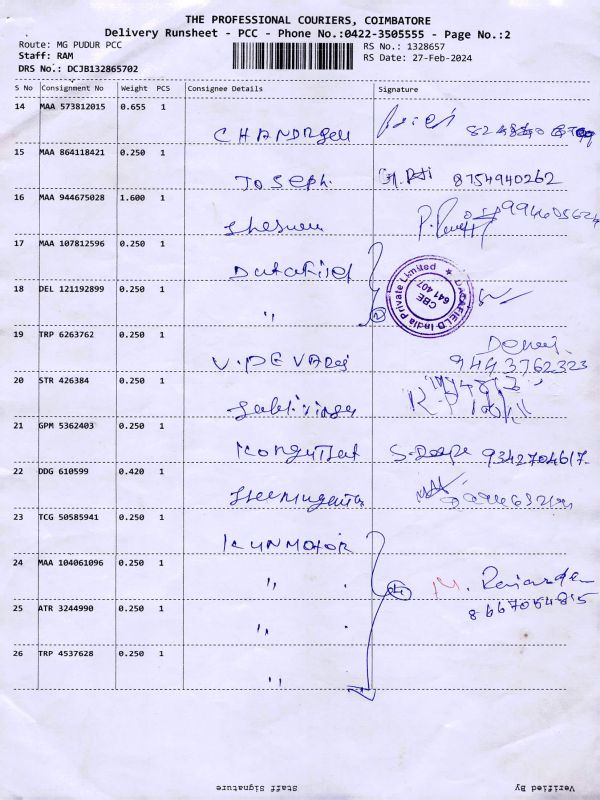 THE PROFESSIONAL COURIERS, COIMBATORE
Delivery Runsheet - PCC - Phone No.:0422-3505555 - Page No.:2
Route: MG PUDUR PCC
RS No.: 1328657
Staff: RAM
RS Date: 27-Feb-2024
DRS No.: DCJB132865702
S No Consignment No Weight PCS Consignee Details Signature
14 MAA 573812015 0.655 1
15 MAA 864118421 0.250 1
Joseph. 8754940262
16 MAA 944675028 1.600 1
17 MAA 107812596 0.250 1
DATAFIELD India Private Limited
CBE
641 407
18 DEL 121192899 0.250 1
"
2
19 TRP 6263762 0.250 1
V. DEVARaj 9443762323
20 STR 426384 0.250 1
21 GPM 5362403 0.250 1
9342704617
22 DDG 610599 0.420 1
23 TCG 50585941 0.250 1
KUNMOTOR
24 MAA 104061096 0.250 1
"
4
M.
25 ATR 3244990 0.250 1
8667054815
"
26 TRP 4537628 0.250 1
"
Staff Signature
Verified By